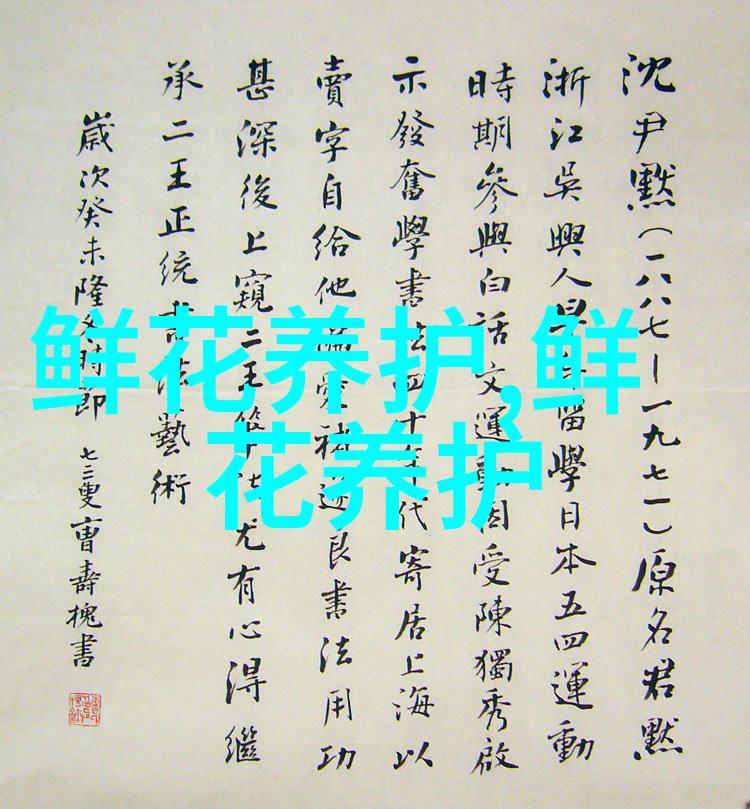 沈尹默（一八八七—一九七一）原名君默
浙江吳興人早年留學日本五四運動
時期參與白話文運動因受陳獨秀啟
示發奮學書法四十年代寄居上海以
賣字自給他偏愛褚遂良書法用功
甚深後上窺二王筆法尤有心得繼
承二王正統書法藝術
歲次癸未隆冬時節 七三叟曹壽槐書
鲜花养护,鲜
花养护